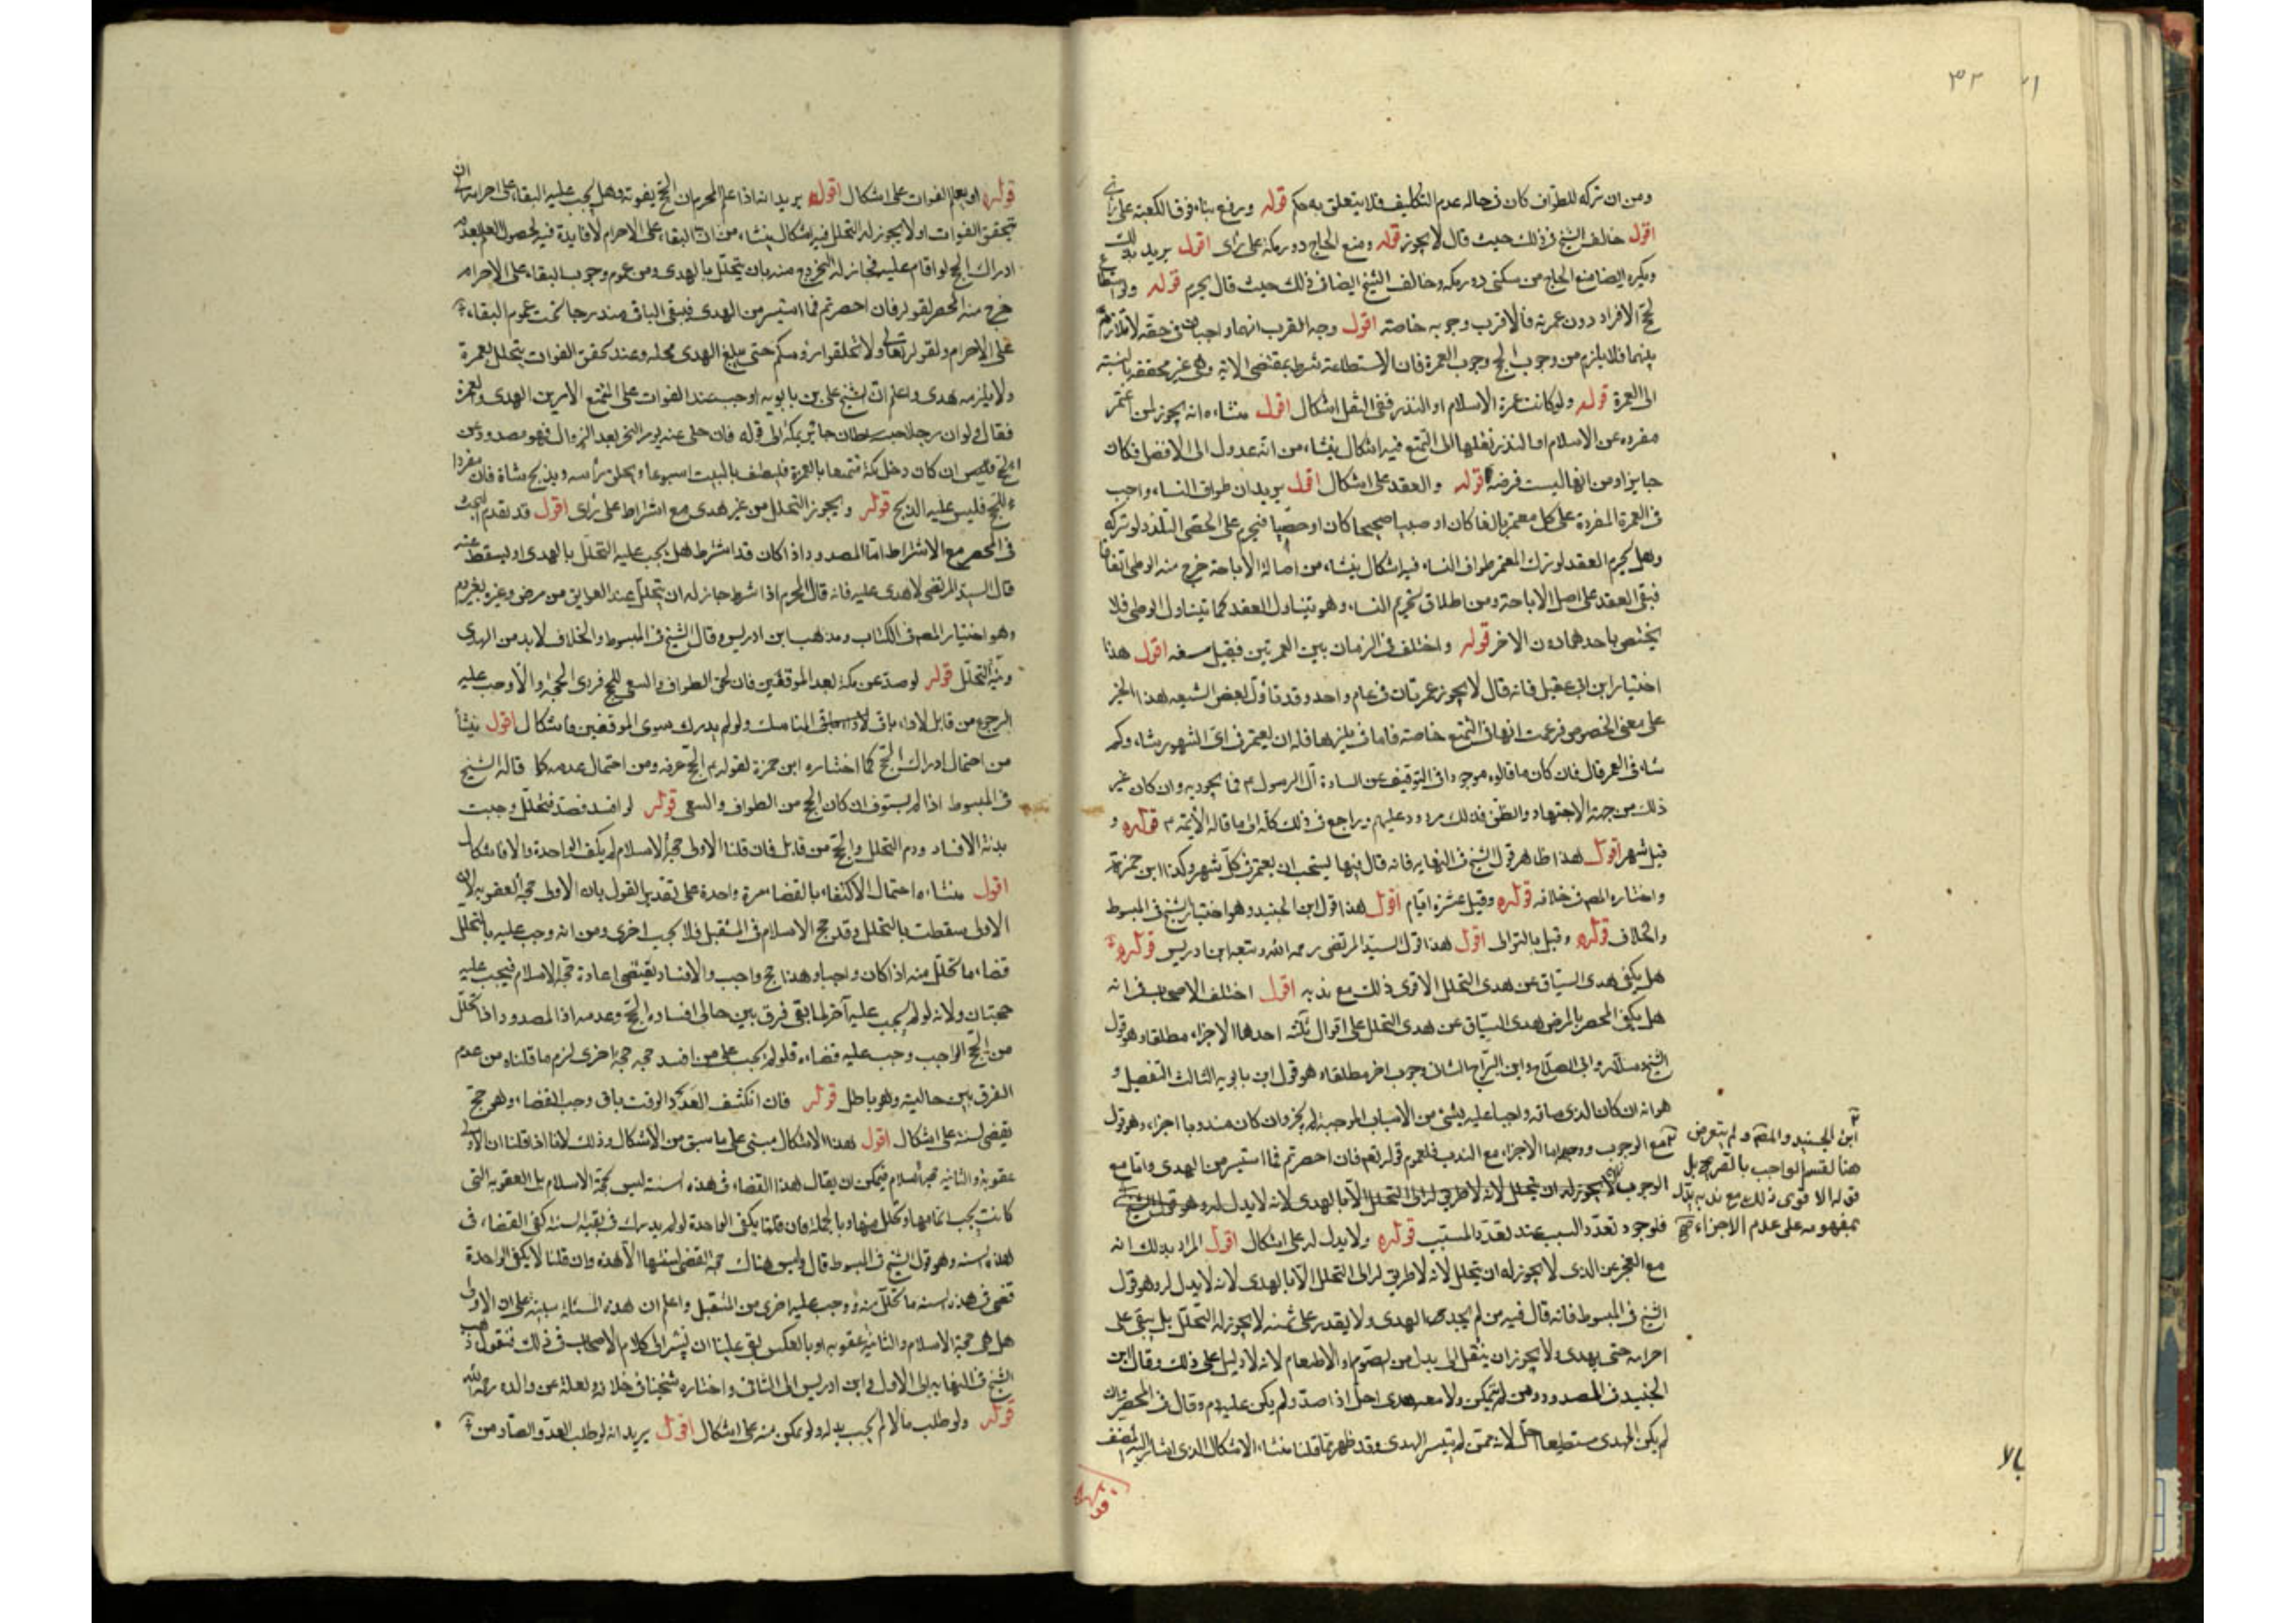 ٣٢
ومن ان تركه للطواف كان في حاله عدم التكليف فلا يتعلق به حكم قوله ويرفع بناء فوق الكعبة على رأى
اقول خالف الشيخ في ذلك حيث قال لا يجوز قوله ومنع الحاج دور مكة على رأى اقول يريد بذلك
ويكره ايضا منع الحاج من سكنى دور مكه وخالف الشيخ ايضا في ذلك حيث قال يحرم قوله ولو استطاع
لحج الافراد دون عمرته فالاقرب وجوبه خاصة اقول وجه القرب انهما واجبان في حقه لا تلازم
بينهما فلا يلزم من وجوب الحج وجوب العمرة فان الاستطاعة شرط بمقتضى الاية وهى غير محققة بالنسبة
الى العمرة قوله ولو كانت عمرة الاسلام او النذر ففى النقل اشكال اقول منشاءه انه يجوز لمن اعتمر
مفرده عن الاسلام او النذر نقلها الى التمتع فيه اشكال ينشاء من انه عدول الى الافضل فكان
جايزا ومن انها ليست فرضه قوله والعقد على اشكال اقول يريد ان طواف النساء واجب
في العمرة المفردة على كل معتمر بالغا كان او صبيا صحيحا كان او خصيا فيحرم على الخصى التلذذ لو تركه
وهل يحرم العقد لو ترك المعتمر طواف النساء فيه اشكال ينشاء من اصالة الاباحة خرج منه الوطى اتفاقا
فبقى العقد على اصل الاباحة ومن اطلاق تحريم النساء وهو يتناول العقد كما يتناول الوطى فلا
يختص باحدهما دون الاخر قوله واختلف في الزمان بين العمرتين فقيل سنه اقول هذا
اختيار ابن ابى عقيل فانه قال لا يجوز عمرتان في عام واحد وقد تأول بعض الشيعه هذا الخبر
على معنى الخصوص فزعمت انها في التمتع خاصة فاما في غيرها فله ان يعتمر في اى الشهور شاء وكم
شاء في العمر قال فان كان ما قالوه موجودا في التوقيف عن السادة آل الرسول م فمأخوذ به وان كان غير
ذلك من جهة الاجتهاد والظن فذلك مردود عليهم ويراجع في ذلك كله الى ما قاله الأئمة م قوله و
قيل شهر اقول هذا ظاهر قول الشيخ في النهايه فانه قال فيها يستحب ان يعتمر في كل شهر وكذا ابن حمزة
واختاره المصـ في خلافه قوله وقيل عشرة ايام اقول هذا قول ابن الجنيد وهو اختيار الشيخ في المبسوط
والخلاف قوله وقيل بالتوالى اقول هذا قول السيد المرتضى رحمه الله وتبعه ابن ادريس قوله
هل يكفى هدى السياق عن هدى التحلل الاقوى ذلك مع ندبه اقول اختلف الاصحاب في انه
هل يكفى المحصر بالمرض هدى السياق عن هدى التحلل على اقوال ثلثه احدها الاجزاء مطلقا وهو قول
الشيخ وسلار وابى الصلاح وابن البراج الثانى وجوب اخر مطلقا وهو قول ابن بابويه الثالث التفصيل و
هو انه ان كان الذى ساقه واجبا عليه بشئ من الاسباب الموجبة لم يجز وان كان مندوبا اجزاء وهو قول
ابن الجنيد والمصـ ولم يتعرض
هنا لقسم الواجب بالتصريح بل
قوله الاقوى ذلك مع ندبه يدل
بمفهومه على عدم الاجزاء صح
مع الوجوب اما الاجزاء مع الندب فلعموم قوله تعم فان احصرتم فما استيسر من الهدى واما مع
الوجوب
فلوجود تعدد السبب عند تعدد المسبب قوله ولا بدل له على اشكال اقول المراد بذلك انه
مع العجز عن الذى لا يجوز له ان يتحلل لانه لا طريق له الى التحلل الا بالهدى لانه لا بدل له وهو قول
الشيخ في المبسوط فانه قال فيه من لم يجد الهدى ولا يقدر على ثمنه لا يجوز له التحلل بل يبقى على
احرامه حتى يهدى ولا يجوز ان ينتقل الى بدل من الصوم او الاطعام لانه لا دليل على ذلك وقال ابن
الجنيد في المصدود ومن لم يتمكن ولا معه هدى احل اذا صد ولم يكن عليه دم وقال في المحصر وان
لم يكن الهدى مستطيعا احل لانه ممن لم يتيسر الهدى وقد ظهر مما قلنا منشاء الاشكال الذى اشار اليه المصنف
قوله او يعلم الفوات على اشكال اقول يريد انه اذا علم المحرم ان الحج يفوته وهل يجب عليه البقاء على احرامه الى ان
يتحقق الفوات او لا يجوز له التحلل فيه اشكال ينشاء من ان البقاء على الاحرام لا فايدة فيه لحصول العلم بعدم
ادراك الحج لو اقام عليه فجاز له الخروج منه بان يتحلل بالهدى ومن عموم وجوب البقاء على الاحرام
خرج منه المحصر لقوله فان احصرتم فما استيسر من الهدى فيبقى الباقى مندرجا تحت عموم البقاء
على الاحرام ولقوله تعالى ولا تحلقوا رؤسكم حتى يبلغ الهدى محله وعند تحقق الفوات يتحلل بعمرة
ولا يلزمه هدى واعلم ان الشيخ على بن بابويه اوجب عند الفوات على المتمتع الامرين الهدى والعمرة
فقال ولو ان رجلا حبسه سلطان جاير بمكة الى قوله فان خلى عنه يوم النحر بعد الزوال فهو مصدود عن
الحج فليس ان كان دخل مكة متمتعا بالعمرة فليطف بالبيت اسبوعا ويحلق رأسه ويذبح شاة فان مفردا
للحج فليس عليه الذبح قوله ويجوز التحلل من غير هدى مع اشتراط على رأى اقول قد تقدم البحث
في المحصر مع الاشتراط اما المصدود اذا كان قد اشترط هل يجب عليه التحلل بالهدى او يسقط عنه
قال السيد المرتضى لا هدى عليه فانه قال المحرم اذا شرط جاز له ان يتحلل عند العوايق من مرض وغيره بغير دم
وهو اختيار المصـ في الكتاب ومذهب ابن ادريس وقال الشيخ في المبسوط والخلاف لا بد من الهدى
ونية التحلل قوله لو صد عن مكة بعد الموقفين فان لحق الطواف والسعى للحج في ذى الحجة والا وجب عليه
الرجوع من قابل لاداء باقى المناسك ولو لم يدرك سوى الموقفين فاشكال اقول ينشأ
من احتمال ادراك الحج كما اختاره ابن حمزة لقوله م الحج عرفه ومن احتمال عدمه كما قاله الشيخ
في المبسوط اذا لم يستوف اركان الحج من الطواف والسعى قوله لو افسد فصد فتحلل وجبت
بدنة الافساد ودم التحلل والحج من قابل فان قلنا الاولى حجة الاسلام لم يكف الواحدة والا فاشكال
اقول منشاءه احتمال الاكتفاء بالقضاء مرة واحدة على تقدير القول بان الاولى حجة العقوبه لان
الاولى سقطت بالتحلل وقد حج الاسلام في المستقبل فلا يجب اخرى ومن انه وجب عليه بالتحلل
قضاء ما تحلل منه اذا كان واجبا وهذا حج واجب والافساد يقتضى اعادة حجة الاسلام فيجب عليه
حجتان ولانه لو لم يجب عليه آخر لما بقى فرق بين حالى افساده الحج وعدمه اذا المصدود اذا تحلل
من الحج الواجب وجب عليه قضاءه فلو لم يجب على من افسد حجه حجه اخرى لزم ما قلناه من عدم
الفرق بين حالتيه وهو باطل قوله فان انكشف العدو والوقت باق وجب القضاء وهو حج
يقضى لسنته على اشكال اقول هذا الاشكال مبنى على ما سبق من الاشكال وذلك لانا اذا قلنا ان الاولى
عقوبة والثانيه حجة الاسلام فيمكن ان يقال هذا القضاء في هذه السنه ليس حجة الاسلام بل العقوبه التى
كانت يجب اتمامها وتحلل منها وبالجملة فان قلنا يكفى الواحدة لو لم يدرك في بقيه السنه كفى القضاء في
هذه السنه وهو قول الشيخ في المبسوط قال وليس هناك حجة تقضى لسنتها الا هذه وان قلنا لا يكفى الواحدة
قضى في هذه السنه ما تحلل منه ووجب عليه اخرى من المستقبل واعلم ان هذه المسئلة مبنية على ان الاولى
هل هى حجة الاسلام والثانية عقوبه او بالعكس بقى علينا ان نشير الى كلام الاصحاب في ذلك فنقول ذهب
الشيخ في النهايه الى الاول وابن ادريس الى الثانى واختاره شيخنا في خلافه ونقله عن والده رحمه الله
قوله ولو طلب مالا لم يجب بذله ولو تمكن منه على اشكال اقول يريد انه لو طلب العدو الصاد من